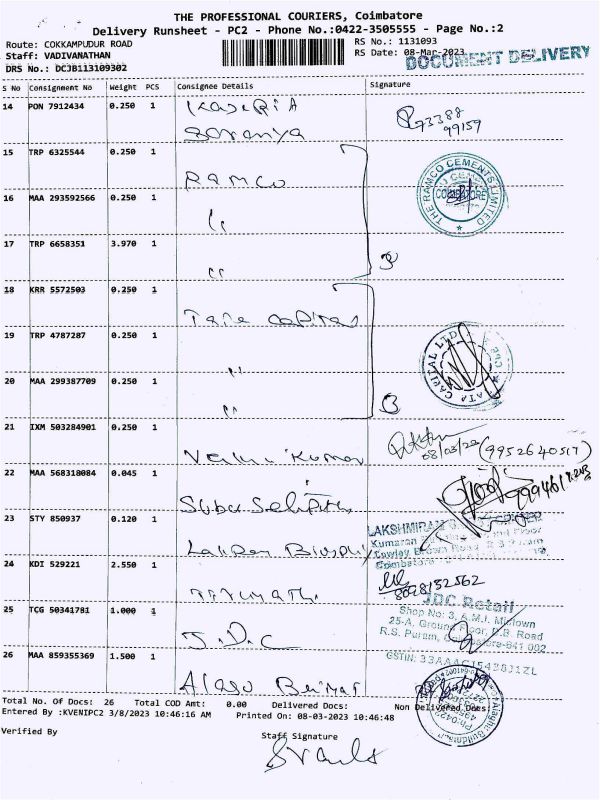 THE PROFESSIONAL COURIERS, Coimbatore
Delivery Runsheet - PC2 - Phone No.:0422-3505555 - Page No.:2
Route: COKKAMPUDUR ROAD
Staff: VADIVANATHAN
DRS No.: DCJB113109302
RS No.: 1131093
RS Date: 08-Mar-2023
DOCUMENT DELIVERY
S No Consignment No Weight PCS Consignee Details Signature
14 PON 7912434 0.250 1
Soranya
73388
99159
15 TRP 6325544 0.250 1
RAMCO
THE RAMCO CEMENTS LIMITED
COIMBATORE
16 MAA 293592566 0.250 1
"
17 TRP 6658351 3.970 1
"
3
18 KRR 5572503 0.250 1
Tata Capital
19 TRP 4787287 0.250 1
"
TATA CAPITAL LTD
20 MAA 299387709 0.250 1
"
21 IXM 503284901 0.250 1
Kumar
08/03/23 (9952640517)
22 MAA 568318084 0.045 1
Suba
23 STY 850937 0.120 1
LAKSHMIRAM
Kumaran
Cowley Brown Road
Coimbatore
24 KDI 529221 2.550 1
8098152562
25 TCG 50341781 1.000 1
J.D.C
JDC Retail
Shop No: 3, A.M.I. Midtown
25-A, Ground Floor, D.B. Road
R.S. Puram, Coimbatore-641 002
GSTIN:
26 MAA 859355369 1.500 1
Total No. Of Docs: 26 Total COD Amt: 0.00 Delivered Docs: Non Delivered Docs:
Entered By :KVENIPC2 3/8/2023 10:46:16 AM Printed On: 08-03-2023 10:46:48
Verified By
Staff Signature